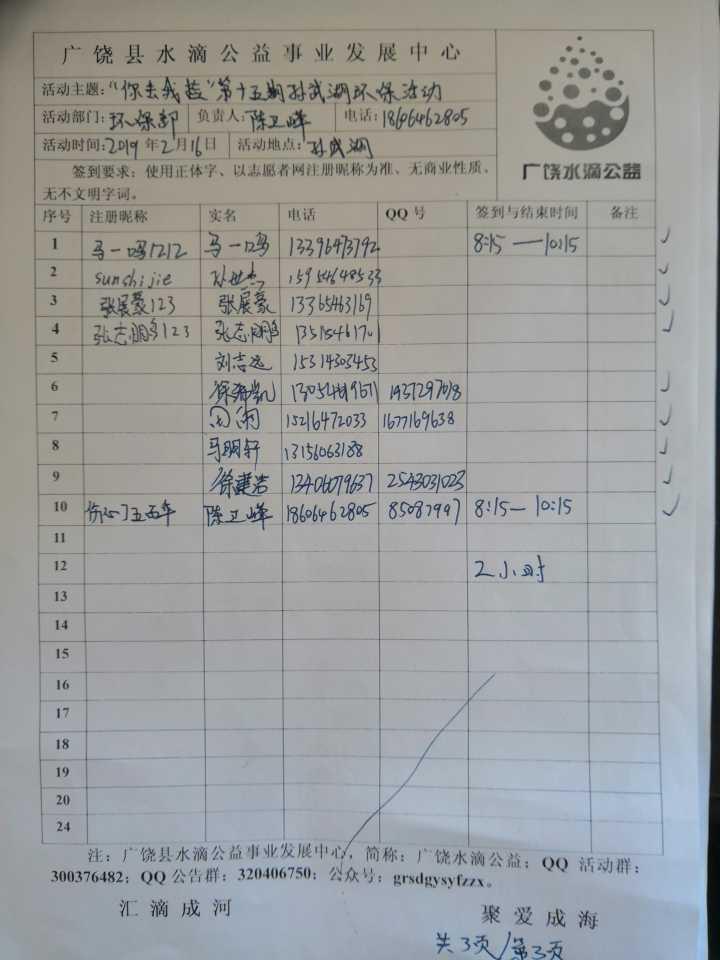 广饶县水滴公益事业发展中心
活动主题:"你去我捡"第十五期孙武湖环保活动
活动部门:环保部 负责人:陈卫峰 电话:18606462805
活动时间:2019年2月16日 活动地点:孙武湖
签到要求:使用正体字、以志愿者网注册昵称为准、无商业性质、
无不文明字词。
广饶水滴公益
序号 注册昵称 实名 电话 QQ号 签到与结束时间 备注
1 马一鸣1212 马一鸣 13396473792 8:15—10:15
2 sunshijie 孙世杰 15954648533
3 张展豪123 张展豪 13365463169
4 张志鹏123 张志鹏 13515461701
5 刘志远 15314303453
6 1937297018
7 15216472033 1677169638
8 马明轩 13156063188
9 徐建浩 13406079637 2543031023
10 陈卫峰 18606462805 85087997 8:15—10:15
11
12 2小时
13
14
15
16
17
18
19
20
24
注:广饶县水滴公益事业发展中心,简称:广饶水滴公益;QQ活动群:
300376482;QQ公告群:320406750;公众号:grsdgysyfzzx。
汇滴成河 聚爱成海
共3页/第3页